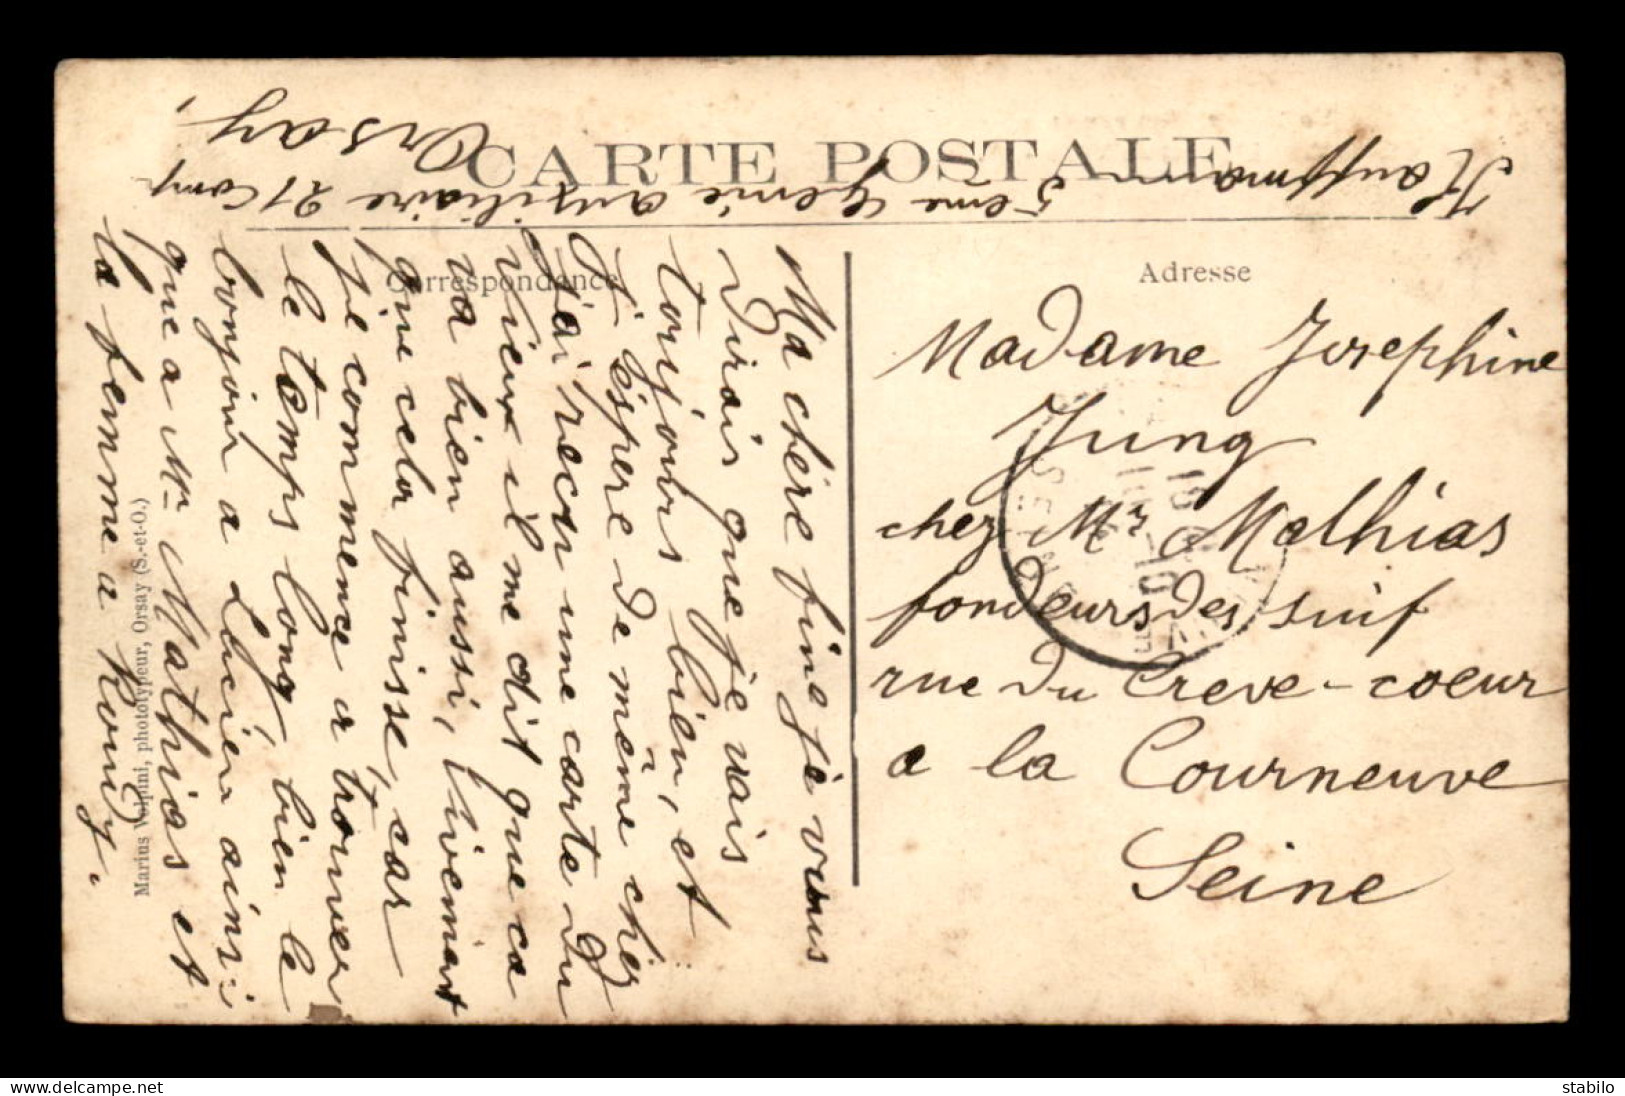 CARTE POSTALE
Kauffmann 5ème Génie auxiliaire 21 Comp
Orsay,
Correspondance
Ma chère fine je vous
dirais que je vais
toujours bien, et
J'éspère de même chez
J'ai recu une carte du
vieux il me dit que ca
va bien aussi, vivement
que cela finisse, car
je commence a trouver
le temps long bien le
bonjour a Lucien ainsi
que a Mr Mathias et
la femme a
Marius Volpini, phototypeur, Orsay (S.-et-O.)
Adresse
Madame Josephine
Jung
chez Mr Mathias
fondeurs des suif
rue du Creve-coeur
a la Courneuve
Seine
delcampe.net
stabilo